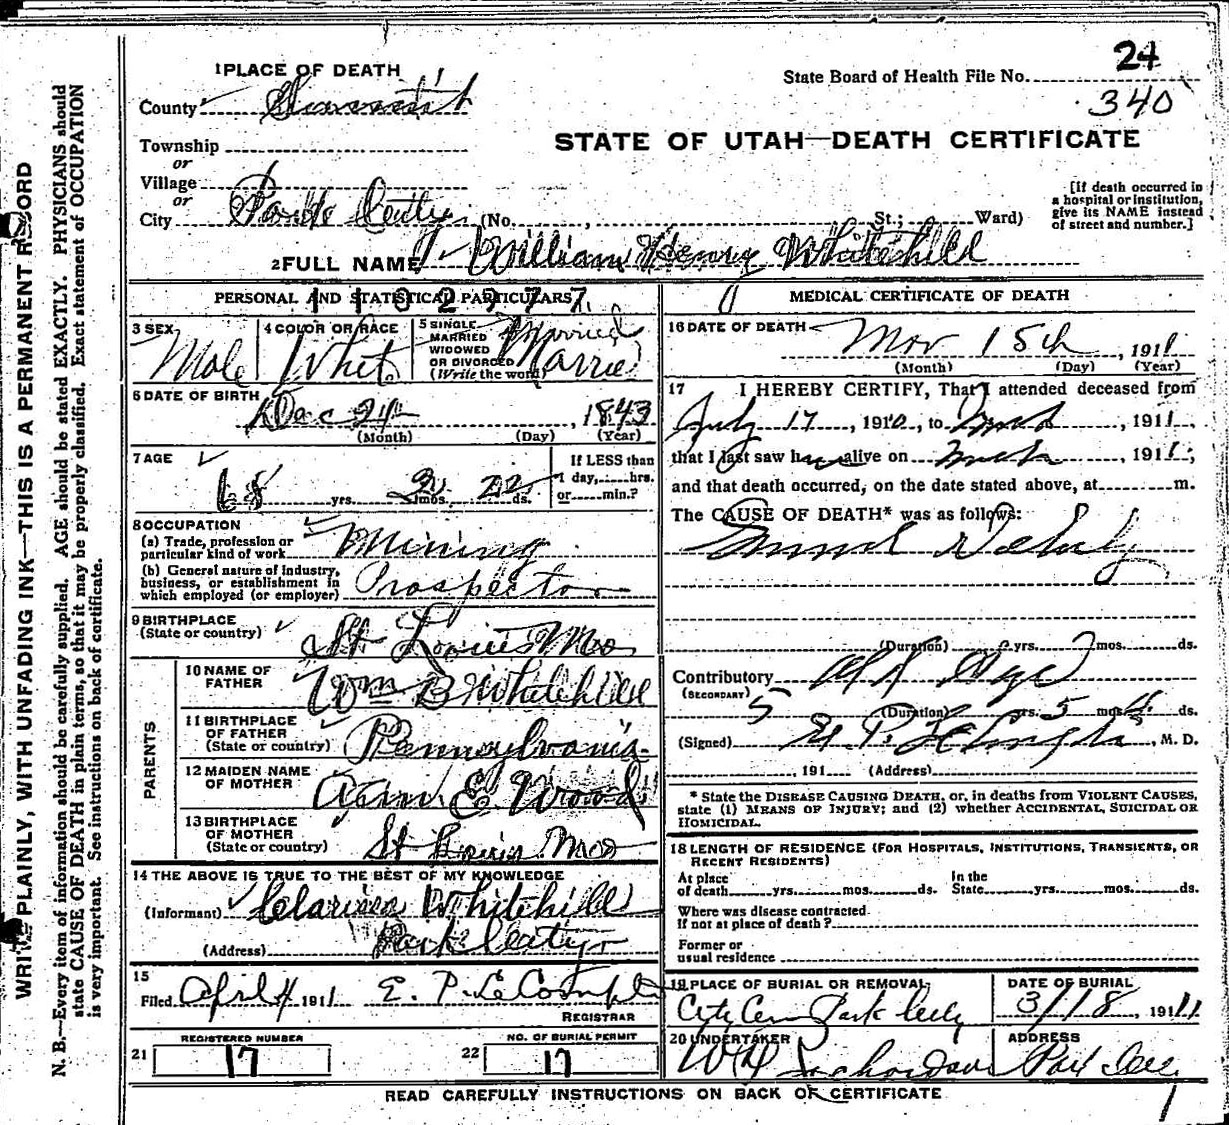 24
1 PLACE OF DEATH
State Board of Health File No.
County Summit
340
STATE OF UTAH—DEATH CERTIFICATE
Township
or
Village
or
City Park City (No. , St.; Ward)
[If death occurred in a hospital or institution, give its NAME instead of street and number.]
2 FULL NAME William Henry Whitehill
PERSONAL AND STATISTICAL PARTICULARS
3 SEX Male
4 COLOR OR RACE White
5 SINGLE MARRIED WIDOWED OR DIVORCED (Write the word) Married
6 DATE OF BIRTH Dec 24, 1843
(Month) (Day) (Year)
7 AGE yrs. mos. 22 ds.
If LESS than 1 day, hrs. or min.?
8 OCCUPATION
(a) Trade, profession or particular kind of work Mining
(b) General nature of industry, business, or establishment in which employed (or employer) Prospector
9 BIRTHPLACE (State or country) St Louis Mo
PARENTS
10 NAME OF FATHER Wm B Whitehill
11 BIRTHPLACE OF FATHER (State or country) Pennsylvania
12 MAIDEN NAME OF MOTHER Ann E. Wood
13 BIRTHPLACE OF MOTHER (State or country) St Louis Mo
14 THE ABOVE IS TRUE TO THE BEST OF MY KNOWLEDGE
(Informant) Clarissa Whitehill
(Address) Park City
15
Filed April 4 1911 E. P. Le Compte
REGISTRAR
REGISTERED NUMBER
21 17
NO. OF BURIAL PERMIT
22 17
MEDICAL CERTIFICATE OF DEATH
16 DATE OF DEATH Mar 15th, 1911
(Month) (Day) (Year)
17 I HEREBY CERTIFY, That I attended deceased from
July 17, 1910, to , 1911,
that I last saw h alive on , 1911,
and that death occurred, on the date stated above, at m.
The CAUSE OF DEATH* was as follows:
(Duration) yrs. mos. ds.
Contributory Old Age
(SECONDARY)
(Duration) yrs. 5 mos. ds.
(Signed) , M. D.
, 191 (Address)
* State the DISEASE CAUSING DEATH, or, in deaths from VIOLENT CAUSES, state (1) MEANS OF INJURY; and (2) whether ACCIDENTAL, SUICIDAL OR HOMICIDAL.
18 LENGTH OF RESIDENCE (FOR HOSPITALS, INSTITUTIONS, TRANSIENTS, OR RECENT RESIDENTS)
At place of death yrs. mos. ds. In the State yrs. mos. ds.
Where was disease contracted if not at place of death?
Former or usual residence
19 PLACE OF BURIAL OR REMOVAL City Cem Park City
DATE OF BURIAL 3/18, 1911
20 UNDERTAKER Richardson
ADDRESS Park City
READ CAREFULLY INSTRUCTIONS ON BACK OF CERTIFICATE
WRITE PLAINLY, WITH UNFADING INK—THIS IS A PERMANENT RECORD
N. B.—Every item of information should be carefully supplied. AGE should be stated EXACTLY. PHYSICIANS should
state CAUSE OF DEATH in plain terms, so that it may be properly classified. Exact statement of OCCUPATION
is very important. See instructions on back of certificate.